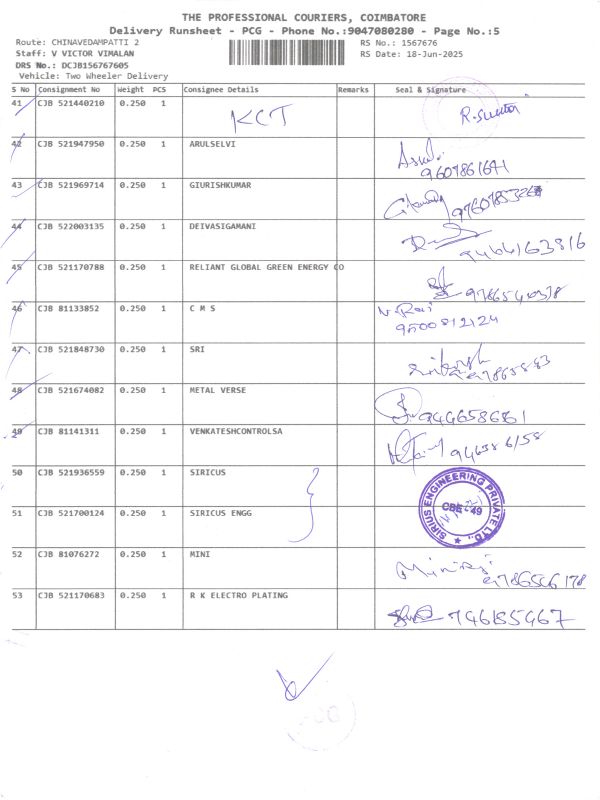 THE PROFESSIONAL COURIERS, COIMBATORE
Delivery Runsheet - PCG - Phone No.:9047080280 - Page No.:5
Route: CHINAVEDAMPATTI 2 RS No.: 1567676
Staff: V VICTOR VIMALAN RS Date: 18-Jun-2025
DRS No.: DCJB156767605
Vehicle: Two Wheeler Delivery
S No Consignment No Weight PCS Consignee Details Remarks Seal & Signature
41 CJB 521440210 0.250 1 KCT
42 CJB 521947950 0.250 1 ARULSELVI
9607861641
43 CJB 521969714 0.250 1 GIURISHKUMAR
44 CJB 522003135 0.250 1 DEIVASIGAMANI
45 CJB 521170788 0.250 1 RELIANT GLOBAL GREEN ENERGY CO
46 CJB 81133852 0.250 1 C M S N. Raj
9500812124
47 CJB 521848730 0.250 1 SRI
48 CJB 521674082 0.250 1 METAL VERSE
49 CJB 81141311 0.250 1 VENKATESHCONTROLSA
50 CJB 521936559 0.250 1 SIRICUS
SIRIUS ENGINEERING PRIVATE LTD.,
CBE - 49
51 CJB 521700124 0.250 1 SIRICUS ENGG
52 CJB 81076272 0.250 1 MINI
53 CJB 521170683 0.250 1 R K ELECTRO PLATING